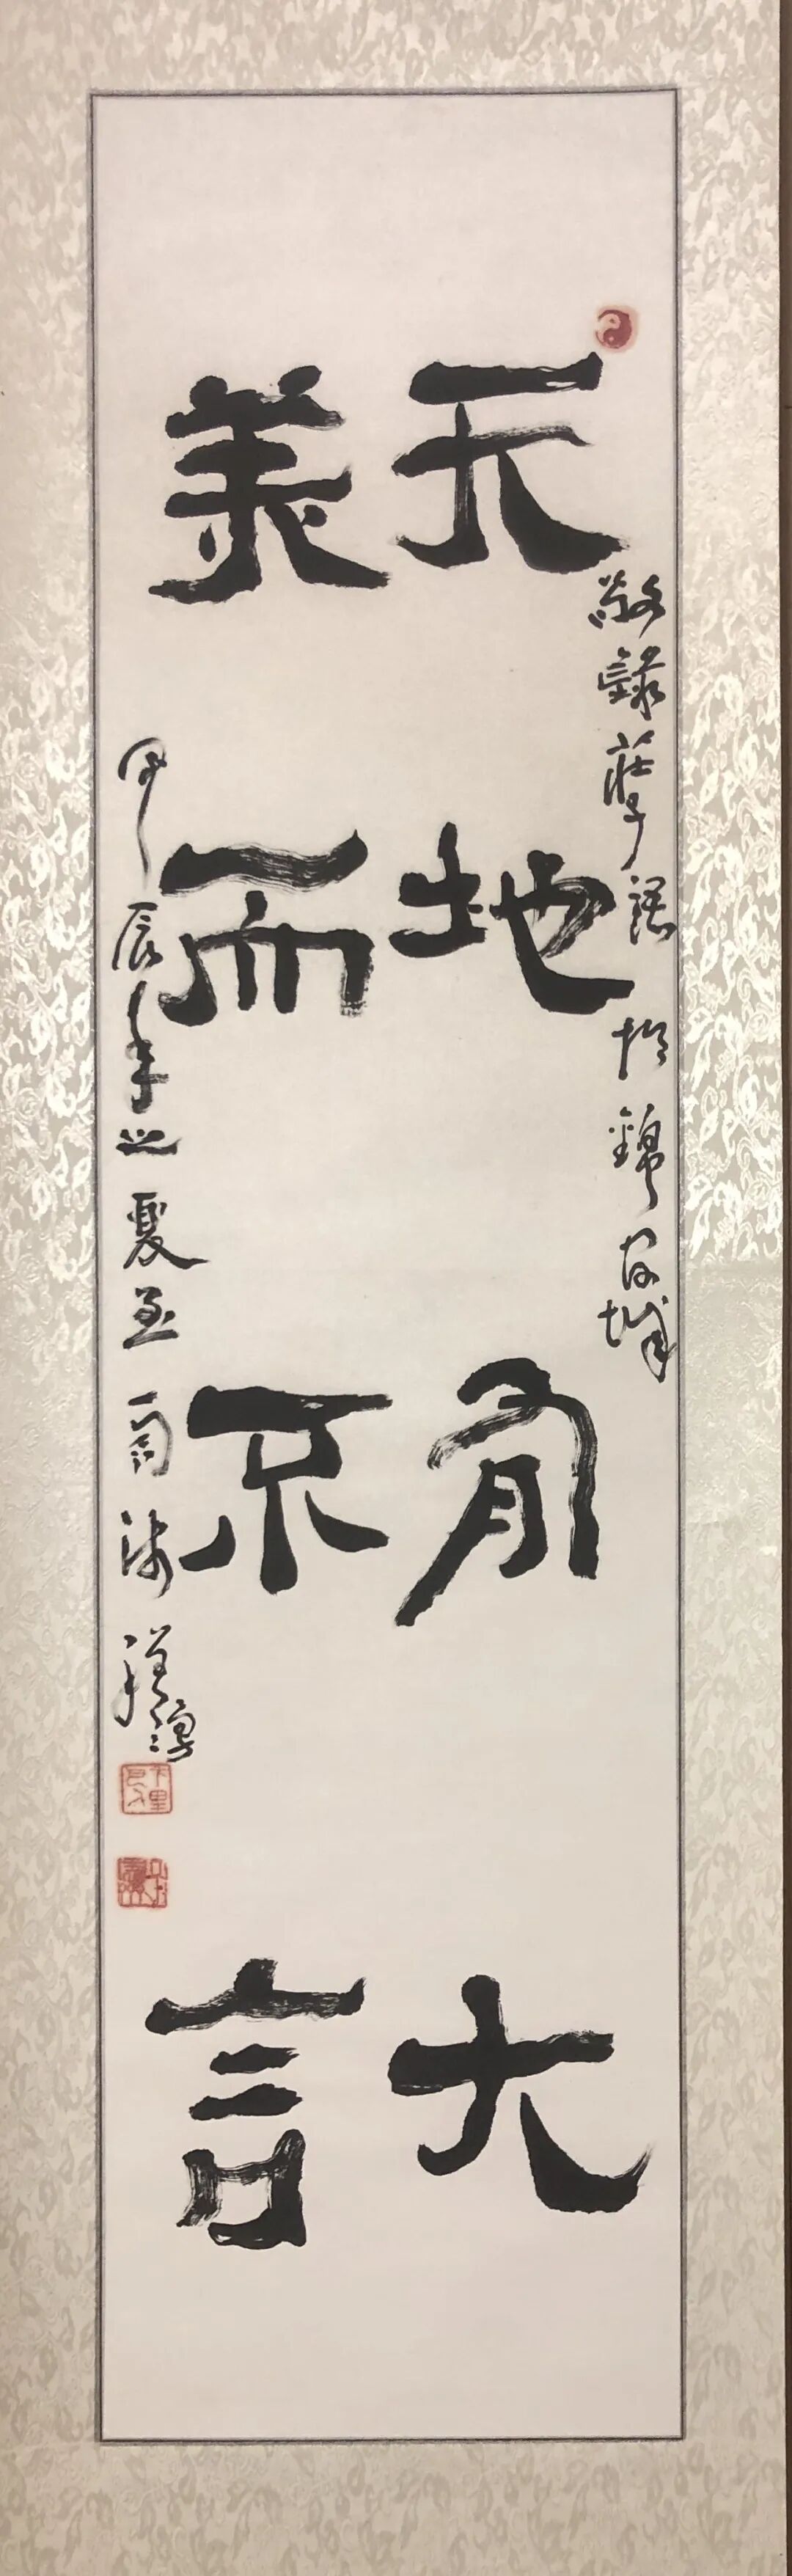 天地有大
美而不言
敬錄莊子語 於錦官城
甲辰年之夏至